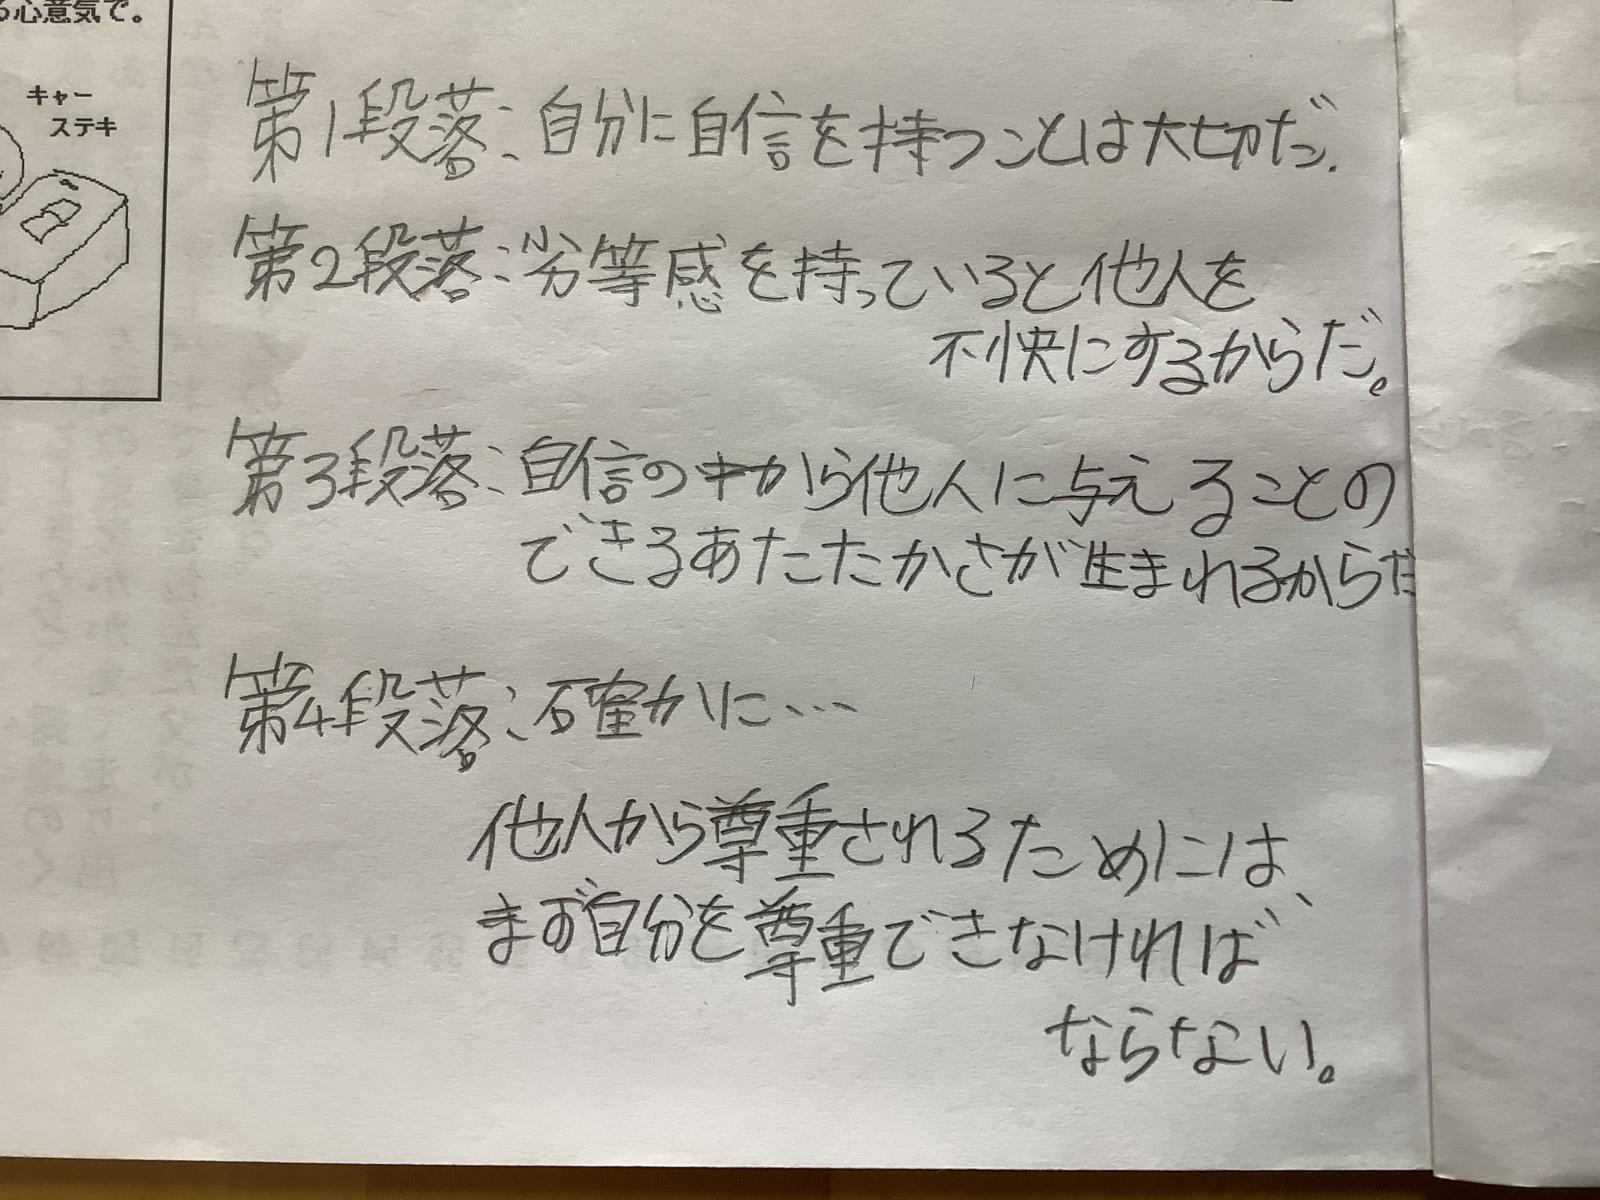 る心意気で。
キャー
ステキ
第1段落:自分に自信を持つことは大切だ.
第2段落:劣等感を持っていると他人を
不快にするからだ。
第3段落:自信の中から他人に与えることの
できるあたたかさが生まれるからだ
第4段落:確かに…
他人から尊重されるためには、
まず自分を尊重できなければ
ならない。